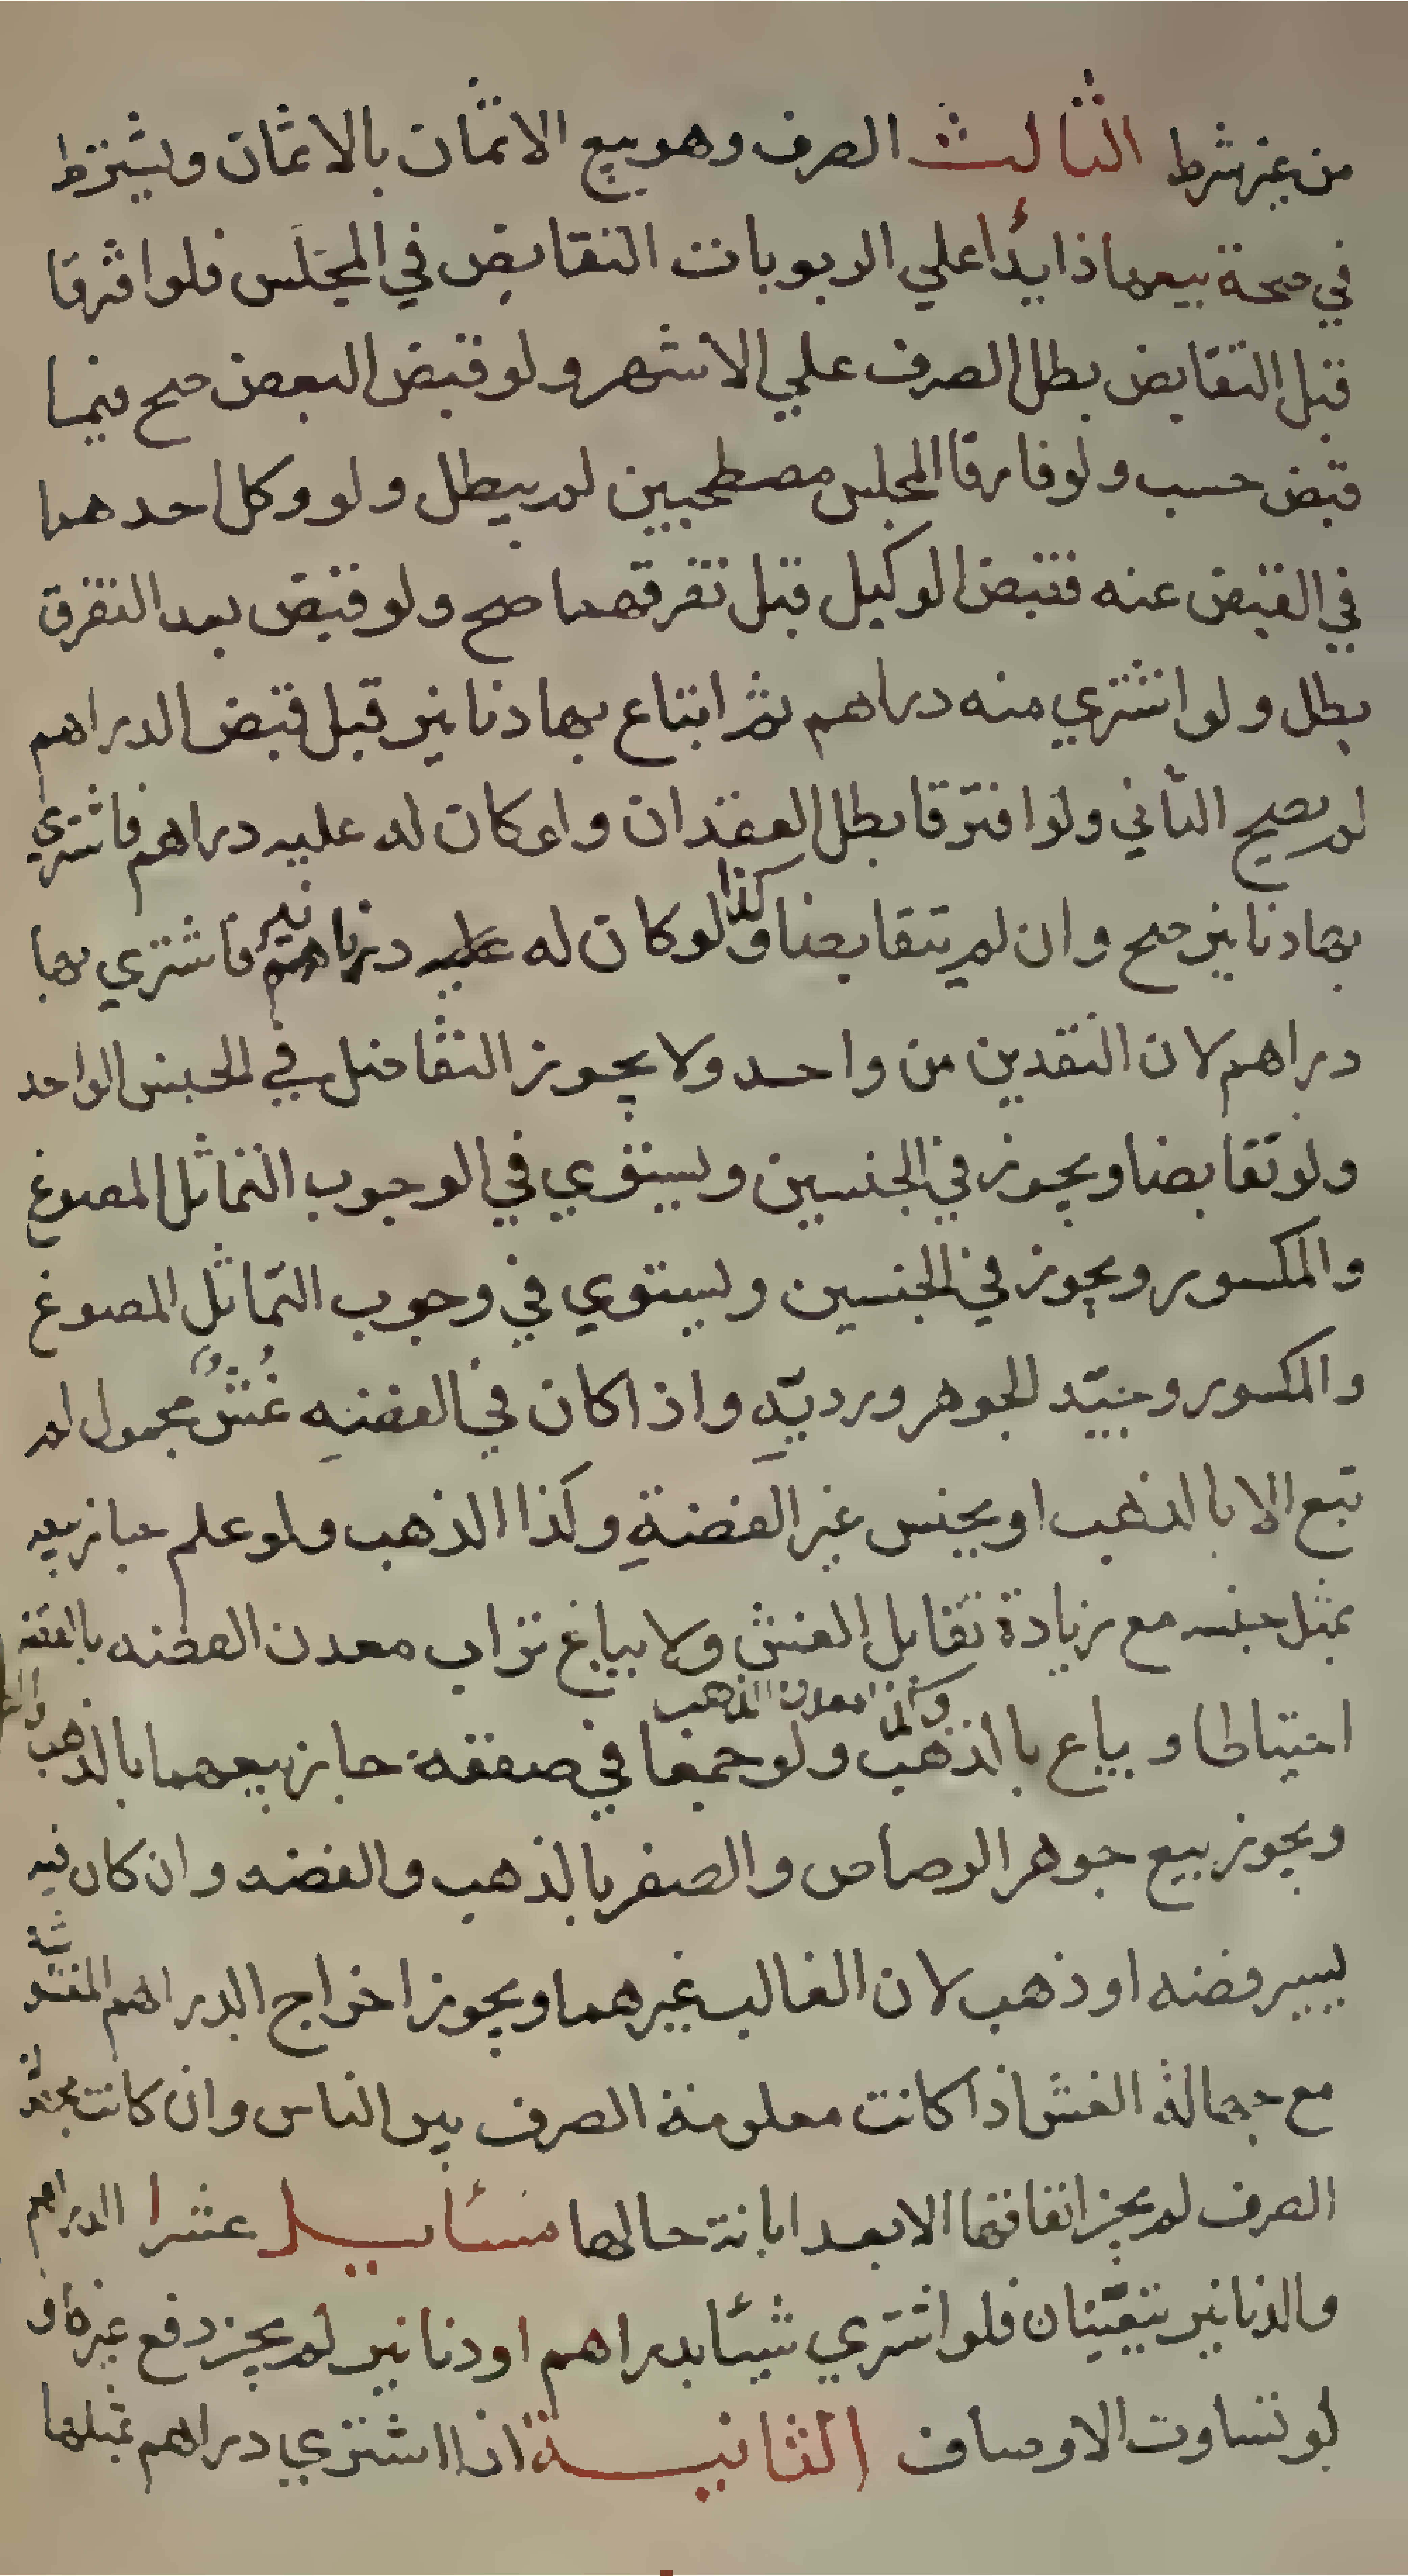 من غير شرط الثالث الصرف وهو بيع الاثمان بالاثمان ويشترط
في صحة بيعها اذا يدًا علي الربويات التقابض في المجلس فلو افترقا
قبل التقابض بطل الصرف علي الاشهر ولو قبض البعض صح فيما
قبض حسب ولو فارقا المجلس مصطحبين لم يبطل ولو وكل احدهما
في القبض عنه فقبض الوكيل قبل تفرقهما صح ولو قبض بعد التفرق
بطل ولو اشتري منه دراهم ثم ابتاع بها دنانير قبل قبض الدراهم
لم يصح الثاني ولو افترقا بطل العقدان كان له عليه دراهم فاشتري
بها دنانير صح وان لم يتقابضا وكذا لو كان له عليه دنانير فاشتري بها
دراهم لان النقدين من واحد ولا يجوز التفاضل في الجنس الواحد
ولو تقابضا ويجوز في الجنسين ويستوي في الوجوب التماثل المصوغ
والمكسور ويجوز في الجنسين ويستوي في وجوب التماثل المصوغ
والمكسور وجيّد الجوهر ورديّهِ واذا كان في الفضهِ غُشٌّ مجهول لم
تبع الا بالذهب او بجنس غير الفضةِ وكذا الذهب ولو علم جاز بيعه
بمثل جنسه مع زيادة تقابل الغش ولا يباع تراب معدن الفضه بالفضه
احتياطا ويباع بالذهب وكذا معدن الذهب ولو جمعا في صفقة جاز بيعهما بالذهب
ويجوز بيع جوهر الرصاص والصفر بالذهب والفضه وان كان فيه
يسير فضه او ذهب لان الغالب غيرهما ويجوز اخراج الدراهم المغشوشة
مع جهالة الغش اذا كانت معلومة الصرف بين الناس وان كانت مجهولة
الصرف لم يجز انفاقها الا بعد ابانة حالها مسأيل عشرا الدراهم
والدنانير يتعيّنان فلو اشتري شيئا بدراهم او دنانير لم يجز دفع غيرها و
لو تساوت الاوصاف الثانية اذا اشتري دراهم بمثلها